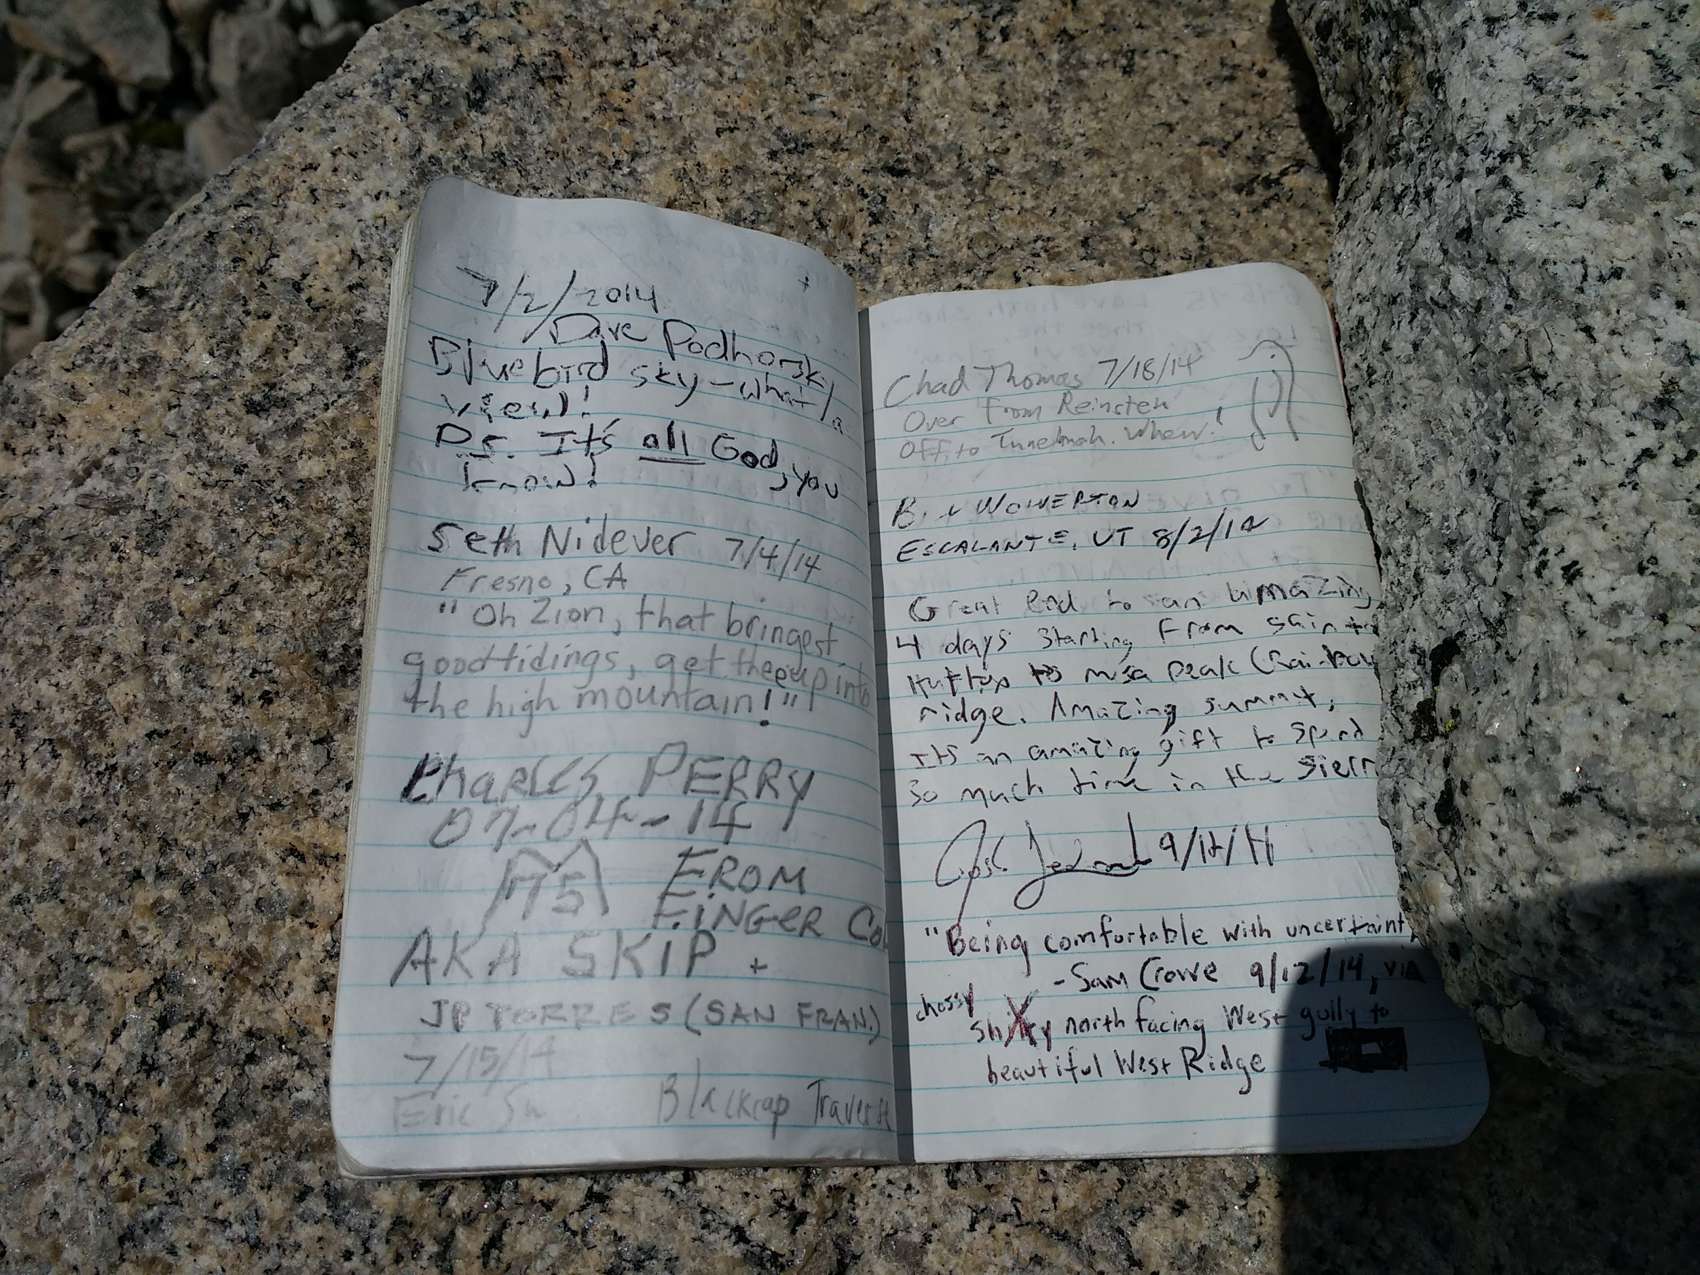 7/2/2014
Dave Podhorsky
Bluebird sky - what a
view!
Ps. It's all God, you
know!
Seth Nidever 7/4/14
Fresno, CA
"Oh Zion, that bringest
good tidings, get thee up into
the high mountain!"
Charles PERRY
07-04-14
FROM
FINGER
AKA SKIP +
JP TORRES (SAN FRAN.)
7/15/14
Eric
Blackcap Traverse
Chad Thomas 7/18/14
Over from Reinstein
Off to Tunemah. Whew!
WOLVERTON
ESCALANTE, UT 8/2/14
Great end to an amazing
4 days starting from
ridge. Amazing summit,
Its an amazing gift to spend
so much time in the Sierra
"Being comfortable with uncertainty
- Sam Crowe 9/12/14, via
chossy
north facing West gully to
beautiful West Ridge